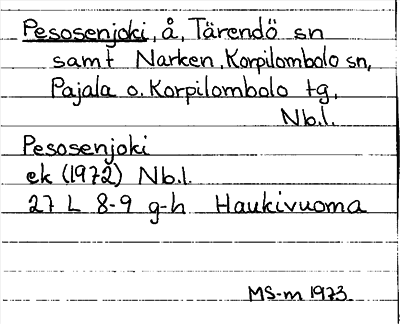 Pesosenjoki, å, Tärendö sn
samt Narken, Korpilombolo sn,
Pajala o. Korpilombolo tg,
Nb.l.
Pesosenjoki
ek (1972) Nb.l.
27 L 8-9 g-h Haukivuoma
MS-m 1973